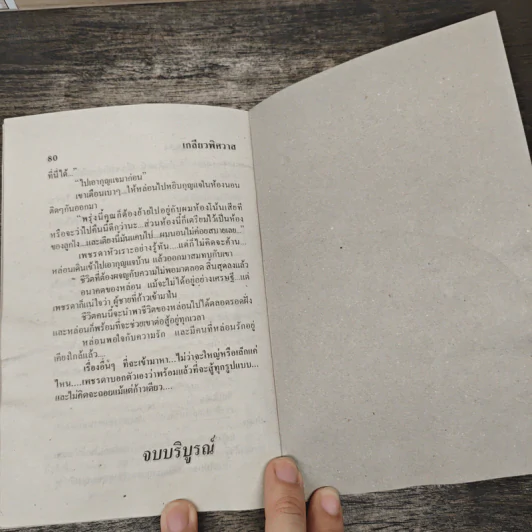 80
เกลียวพิศวาส
ที่นี่ได้..."
"ไปเอากุญแจมาก่อน"
เขาเตือนเบาๆ...ให้หล่อนไปหยิบกุญแจในห้องนอน
ติดๆกันออกมา
"พรุ่งนี้คุณก็ต้องย้ายไปอยู่กับผมห้องโน้นเสียที
หรือจะว่าไปคืนนี้ดีกว่านะ...ส่วนห้องนี้ก็เตรียมไว้เป็นห้อง
ของลูกไง...และเตียงนี่มันแคบไป...ผมนอนไม่ค่อยสบายเลย..."
เพชรดาหัวเราะอย่างรู้ทัน....แต่ก็ไม่คิดจะค้าน...
หล่อนเดินเข้าไปเอากุญแจบ้าน แล้วออกมาสมทบกับเขา
ชีวิตที่ต้องผจญกับความไม่พอมาตลอด สิ้นสุดลงแล้ว
อนาคตของหล่อน แม้จะไม่ได้อยู่อย่างเศรษฐี...แต่
เพชรดาก็แน่ใจว่า ผู้ชายที่ก้าวเข้ามาใน
ชีวิตคนนี้จะนำพาชีวิตของหล่อนไปได้ตลอดรอดฝั่ง
และหล่อนก็พร้อมที่จะช่วยเขาต่อสู้อยู่ทุกเวลา
หล่อนพอใจกับความรัก และมีคนที่หล่อนรักอยู่
เคียงใกล้แล้ว...
เรื่องอื่นๆ ที่จะเข้ามาหา...ไม่ว่าจะใหญ่หรือเล็กแค่
ไหน....เพชรดาบอกตัวเองว่าพร้อมแล้วที่จะสู้ทุกรูปแบบ...
และไม่คิดจะถอยแม้แต่ก้าวเดียว....
จบบริบูรณ์